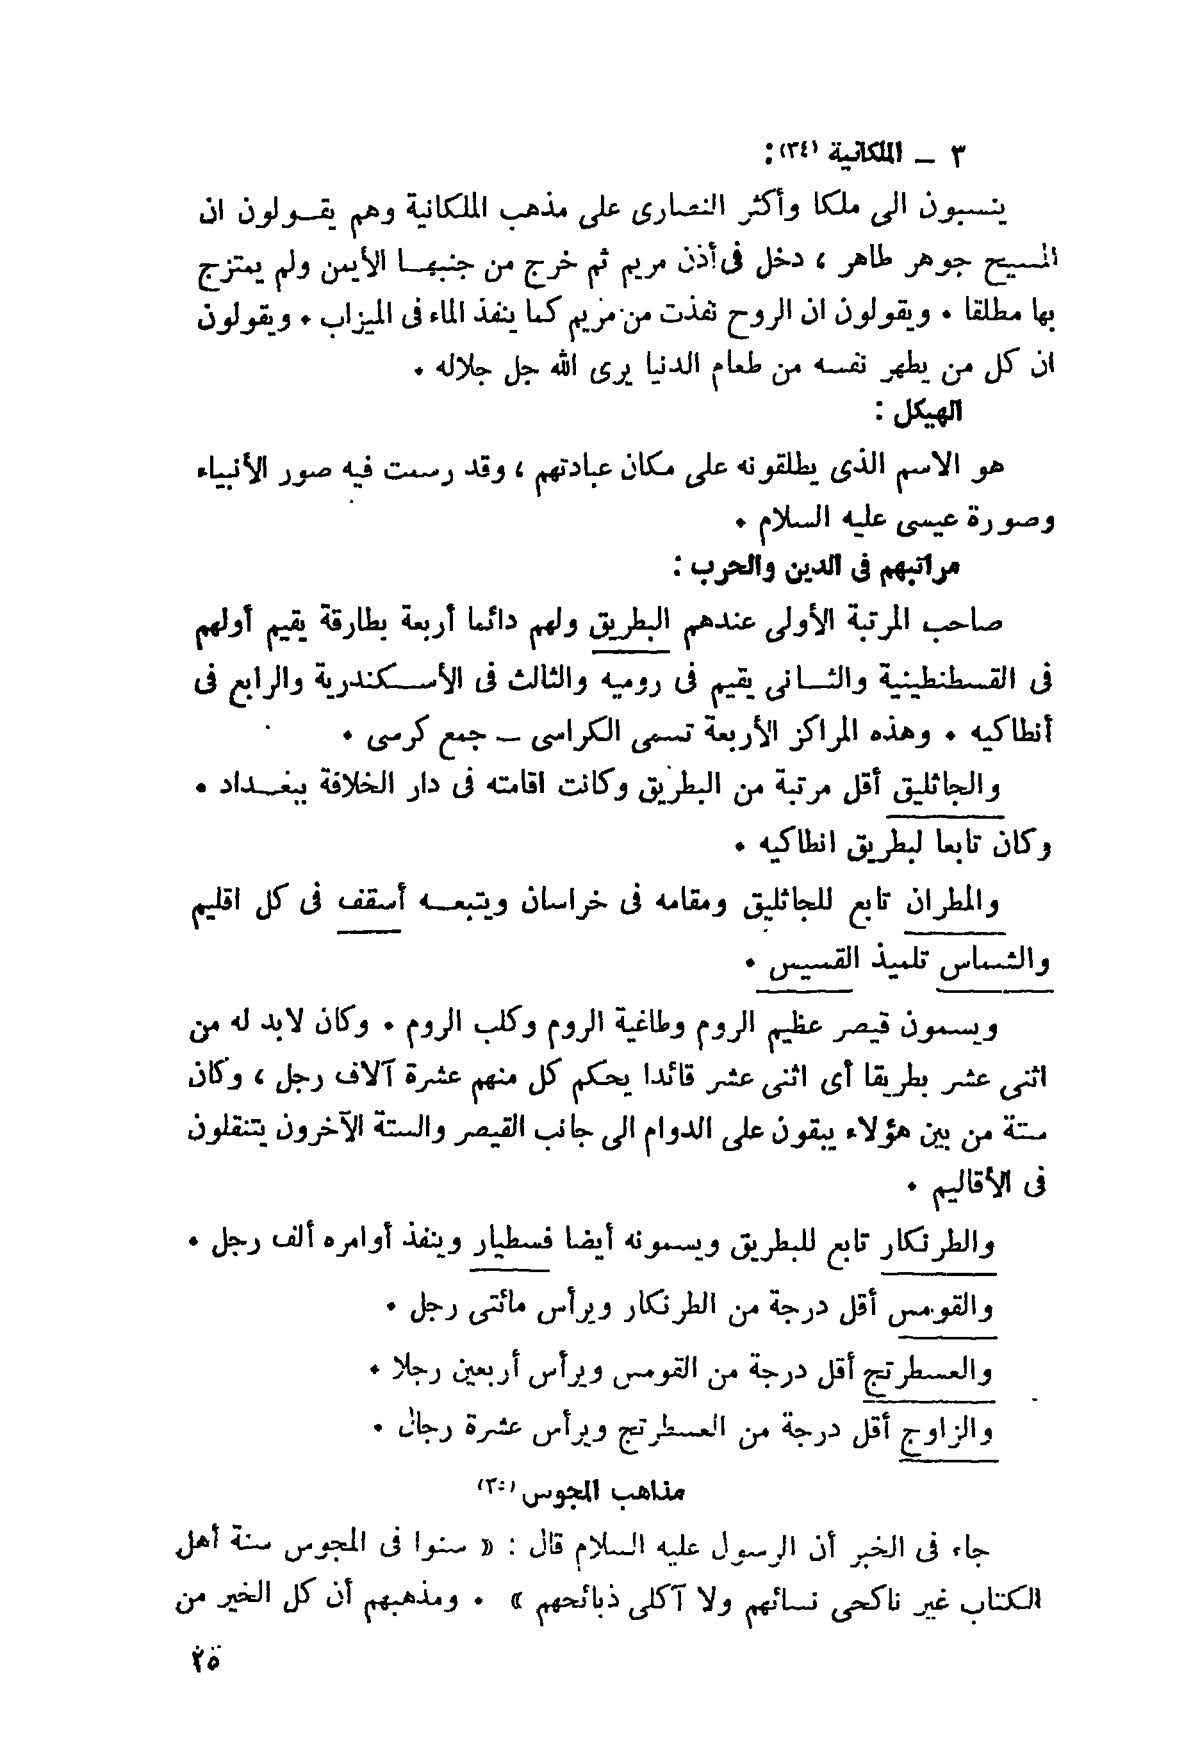 ٣ ـ الملكانية (٣٤) :
ينسبون الى ملكا وأكثر النصارى على مذهب الملكانية وهم يقولون ان
المسيح جوهر طاهر ، دخل فى أذن مريم ثم خرج من جنبها الأيمن ولم يمتزج
بها مطلقا • ويقولون ان الروح نفذت من مريم كما ينفذ الماء فى الميزاب • ويقولون
ان كل من يطهر نفسه من طعام الدنيا يرى الله جل جلاله •
الهيكل :
هو الاسم الذى يطلقونه على مكان عبادتهم ، وقد رسمت فيه صور الأنبياء
وصورة عيسى عليه السلام •
مراتبهم فى الدين والحرب :
صاحب المرتبة الأولى عندهم البطريق ولهم دائما أربعة بطارقة يقيم أولهم
فى القسطنطينية والثانى يقيم فى روميه والثالث فى الأسكندرية والرابع فى
أنطاكيه • وهذه المراكز الأربعة تسمى الكراسى ـ جمع كرسى •
والجاثليق أقل مرتبة من البطريق وكانت اقامته فى دار الخلافة ببغداد •
وكان تابعا لبطريق انطاكيه •
والمطران تابع للجاثليق ومقامه فى خراسان ويتبعه أسقف فى كل اقليم
والشماس تلميذ القسيس •
ويسمون قيصر عظيم الروم وطاغية الروم وكلب الروم • وكان لابد له من
اثنى عشر بطريقا أى اثنى عشر قائدا يحكم كل منهم عشرة آلاف رجل ، وكان
ستة من بين هؤلاء يبقون على الدوام الى جانب القيصر والستة الآخرون يتنقلون
فى الأقاليم •
والطرنكار تابع للبطريق ويسمونه أيضا فسطيار وينفذ أوامره ألف رجل •
والقومس أقل درجة من الطرنكار ويرأس مائتى رجل •
والعسطرتج أقل درجة من القومس ويرأس أربعين رجلا •
والزاوج أقل درجة من العسطرتج ويرأس عشرة رجال •
مذاهب المجوس
جاء فى الخبر أن الرسول عليه السلام قال : « سنوا فى المجوس سنة أهل
الكتاب غير ناكحى نسائهم ولا آكلى ذبائحهم » • ومذهبهم أن كل الخير من
٢٥